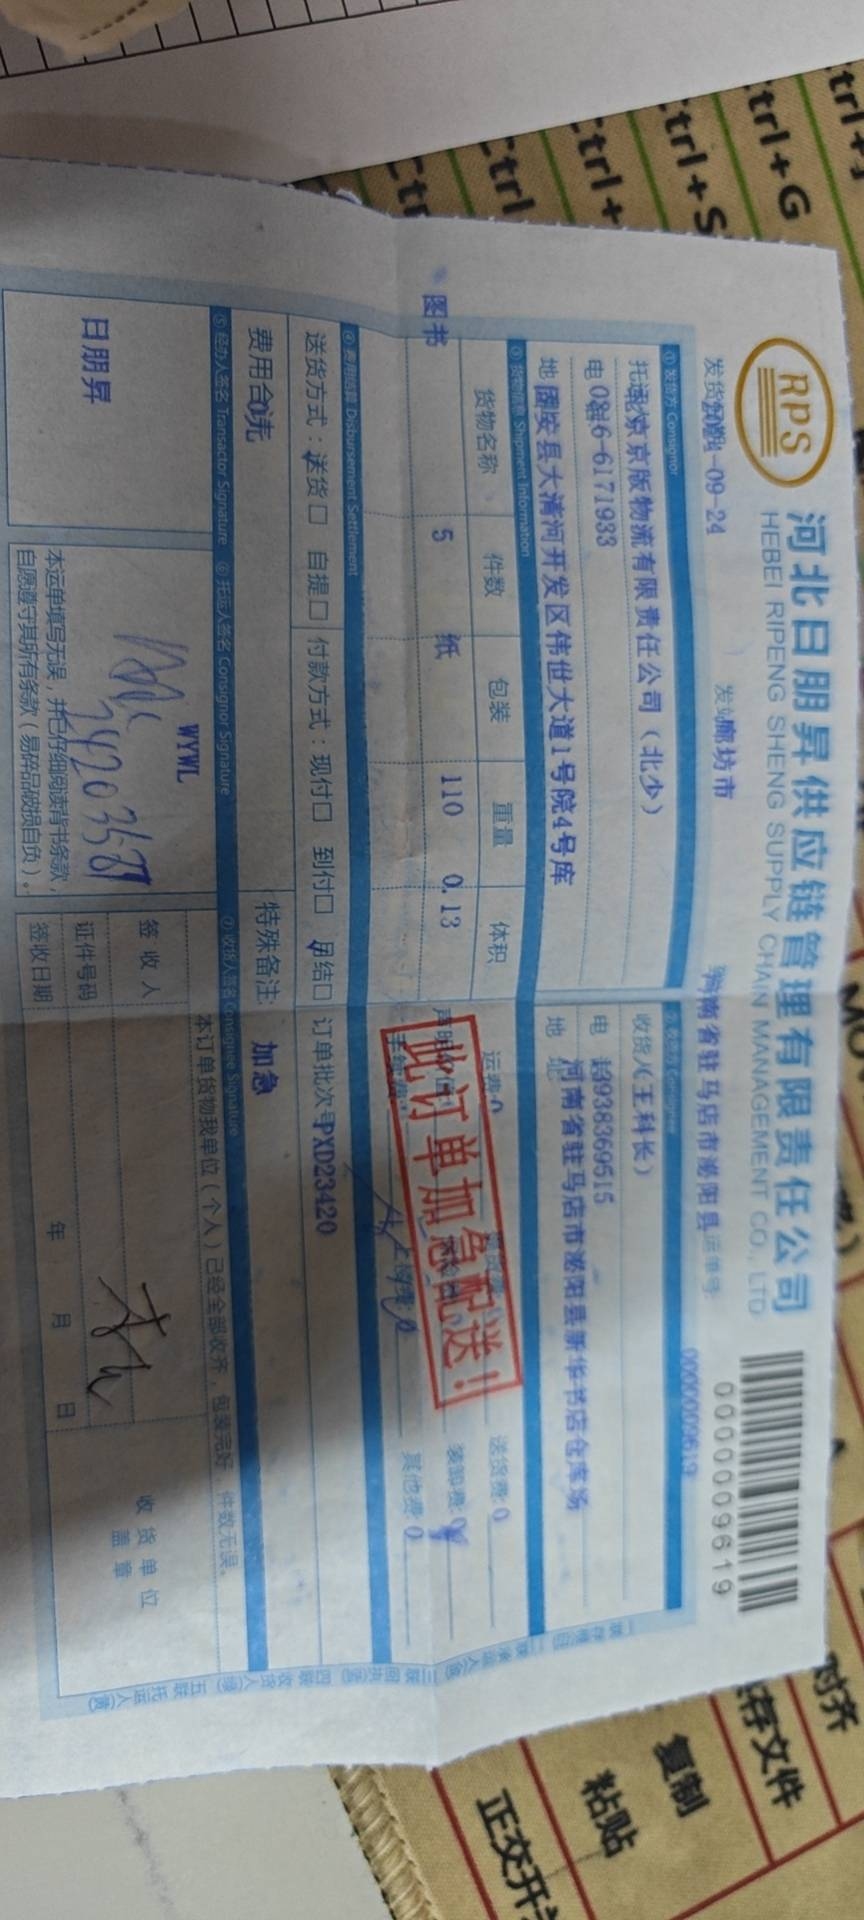 RPS
河北日朋昇供应链管理有限责任公司
HEBEI RIPENG SHENG SUPPLY CHAIN MANAGEMENT CO., LTD
0000009619
-09-24
廊坊市
河南省驻马店市泌阳县
运单号:
0000009619
①发货方 Consignor
京版物流有限责任公司（北少）
6-6171933
固安县大清河开发区伟世大道1号院4号库
收货
(王科长)
电
938369515
地址
河南省驻马店市泌阳县新华书店仓库场
③货物信息 Shipment Information
货物名称
件数
包装
重量
体积
图书
5
纸
110
0.13
运费:0
送货费:0
装卸费:0
其他费:0
此订单加急配送!
④费用结算 Disbursement Settlement
送货方式：送货□
自提□
付款方式：现付□
到付□
月结□
订单批次号
PXD23420
费用合计
特殊备注
加急
⑤经办人签名 Transactor Signature
⑥托运人签名 Consignor Signature
⑦收货人签名 Consignee Signature
日朋昇
WYWL
本运单填写无误，并已仔细阅读背书条款，
自愿遵守其所有条款（易碎品破损自负）。
本订单货物我单位（个人）已经全部收齐，包装完好，件数无误。
签收人
证件号码
签收日期
年
月
日
收货单位
盖章
Ctrl+G
Ctrl+S
对齐
存文件
复制
粘贴
正交开